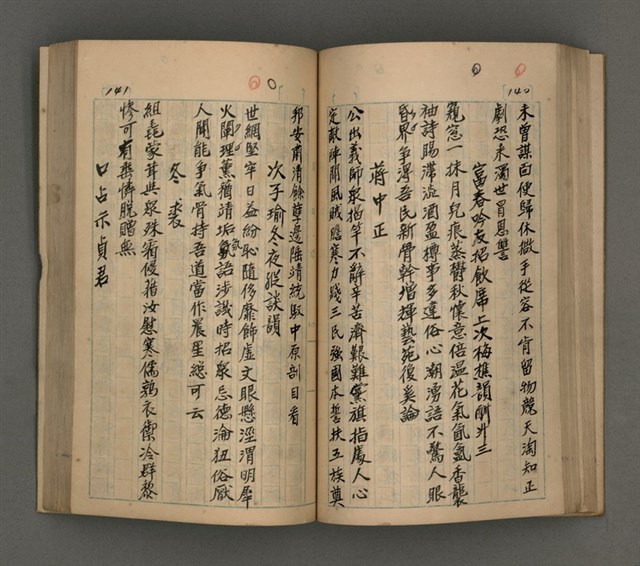 140
未曾謀面便歸休撒手從容不肯留物競天淘知正
劇恐未濁世冒恩讐
富春吟友招飲席上次梅樵韻酬升三
窺窓一抹月兒痕蒸鬱秋懷意倍溫花氣氤氳香襲
袖詩賜滯流酒盈樽事多違俗心潮湧語不驚人眼
昏界爭溥吾民新骨幹增輝藝苑復奚論
蔣中正
公出義師衆揭竿不辭辛苦濟艱難黨旗指處人心
定敵陣聞風賊膽寒力踐三民強國本誓扶五族奠
邦安肅清餘孽邊陲靖統馭中原刮目看
141
次子瑜冬夜縱談韻
世網堅牢日益紛恥隨侈靡飾虛文眼懸涇渭明犀
火闡理薰蕕靖垢氛語涉譏時招衆忌德淪狃俗厭
人聞能爭氣骨持吾道當作晨星總可云
冬裘
組毳蒙茸與衆殊霜侵猶汝慰寒儒鶉衣禦冷群黎
慘可有樂憐脫贈無
口占示貞君